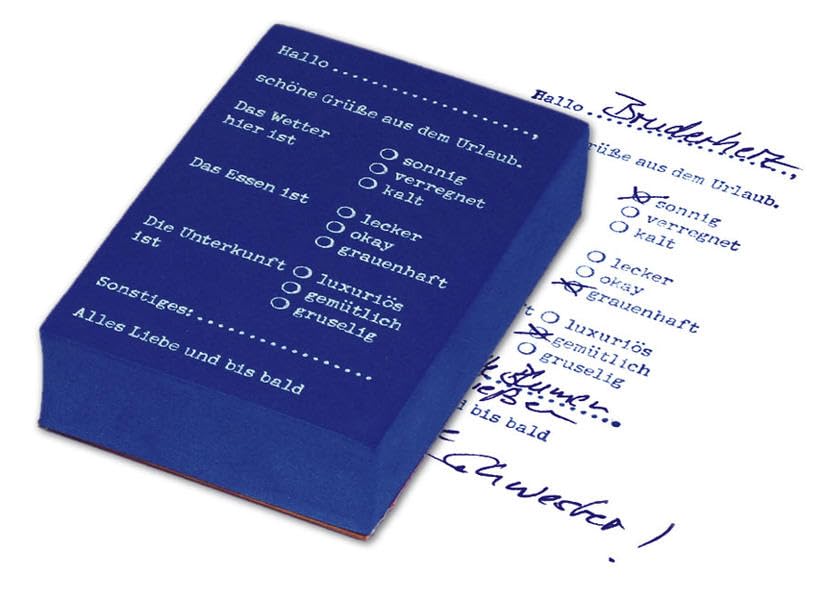 Hallo....................,
schöne Grüße aus dem Urlaub.
Das Wetter
hier ist
sonnig
verregnet
kalt
Das Essen ist
lecker
okay
grauenhaft
Die Unterkunft
ist
luxuriös
gemütlich
gruselig
Sonstiges:....................
Alles Liebe und bis bald
Hallo Bruderherz,
rüße aus dem Urlaub.
sonnig
verregnet
kalt
lecker
okay
grauenhaft
t luxuriös
gemütlich
gruselig
Blumen
ießen
d bis bald
Schwester!